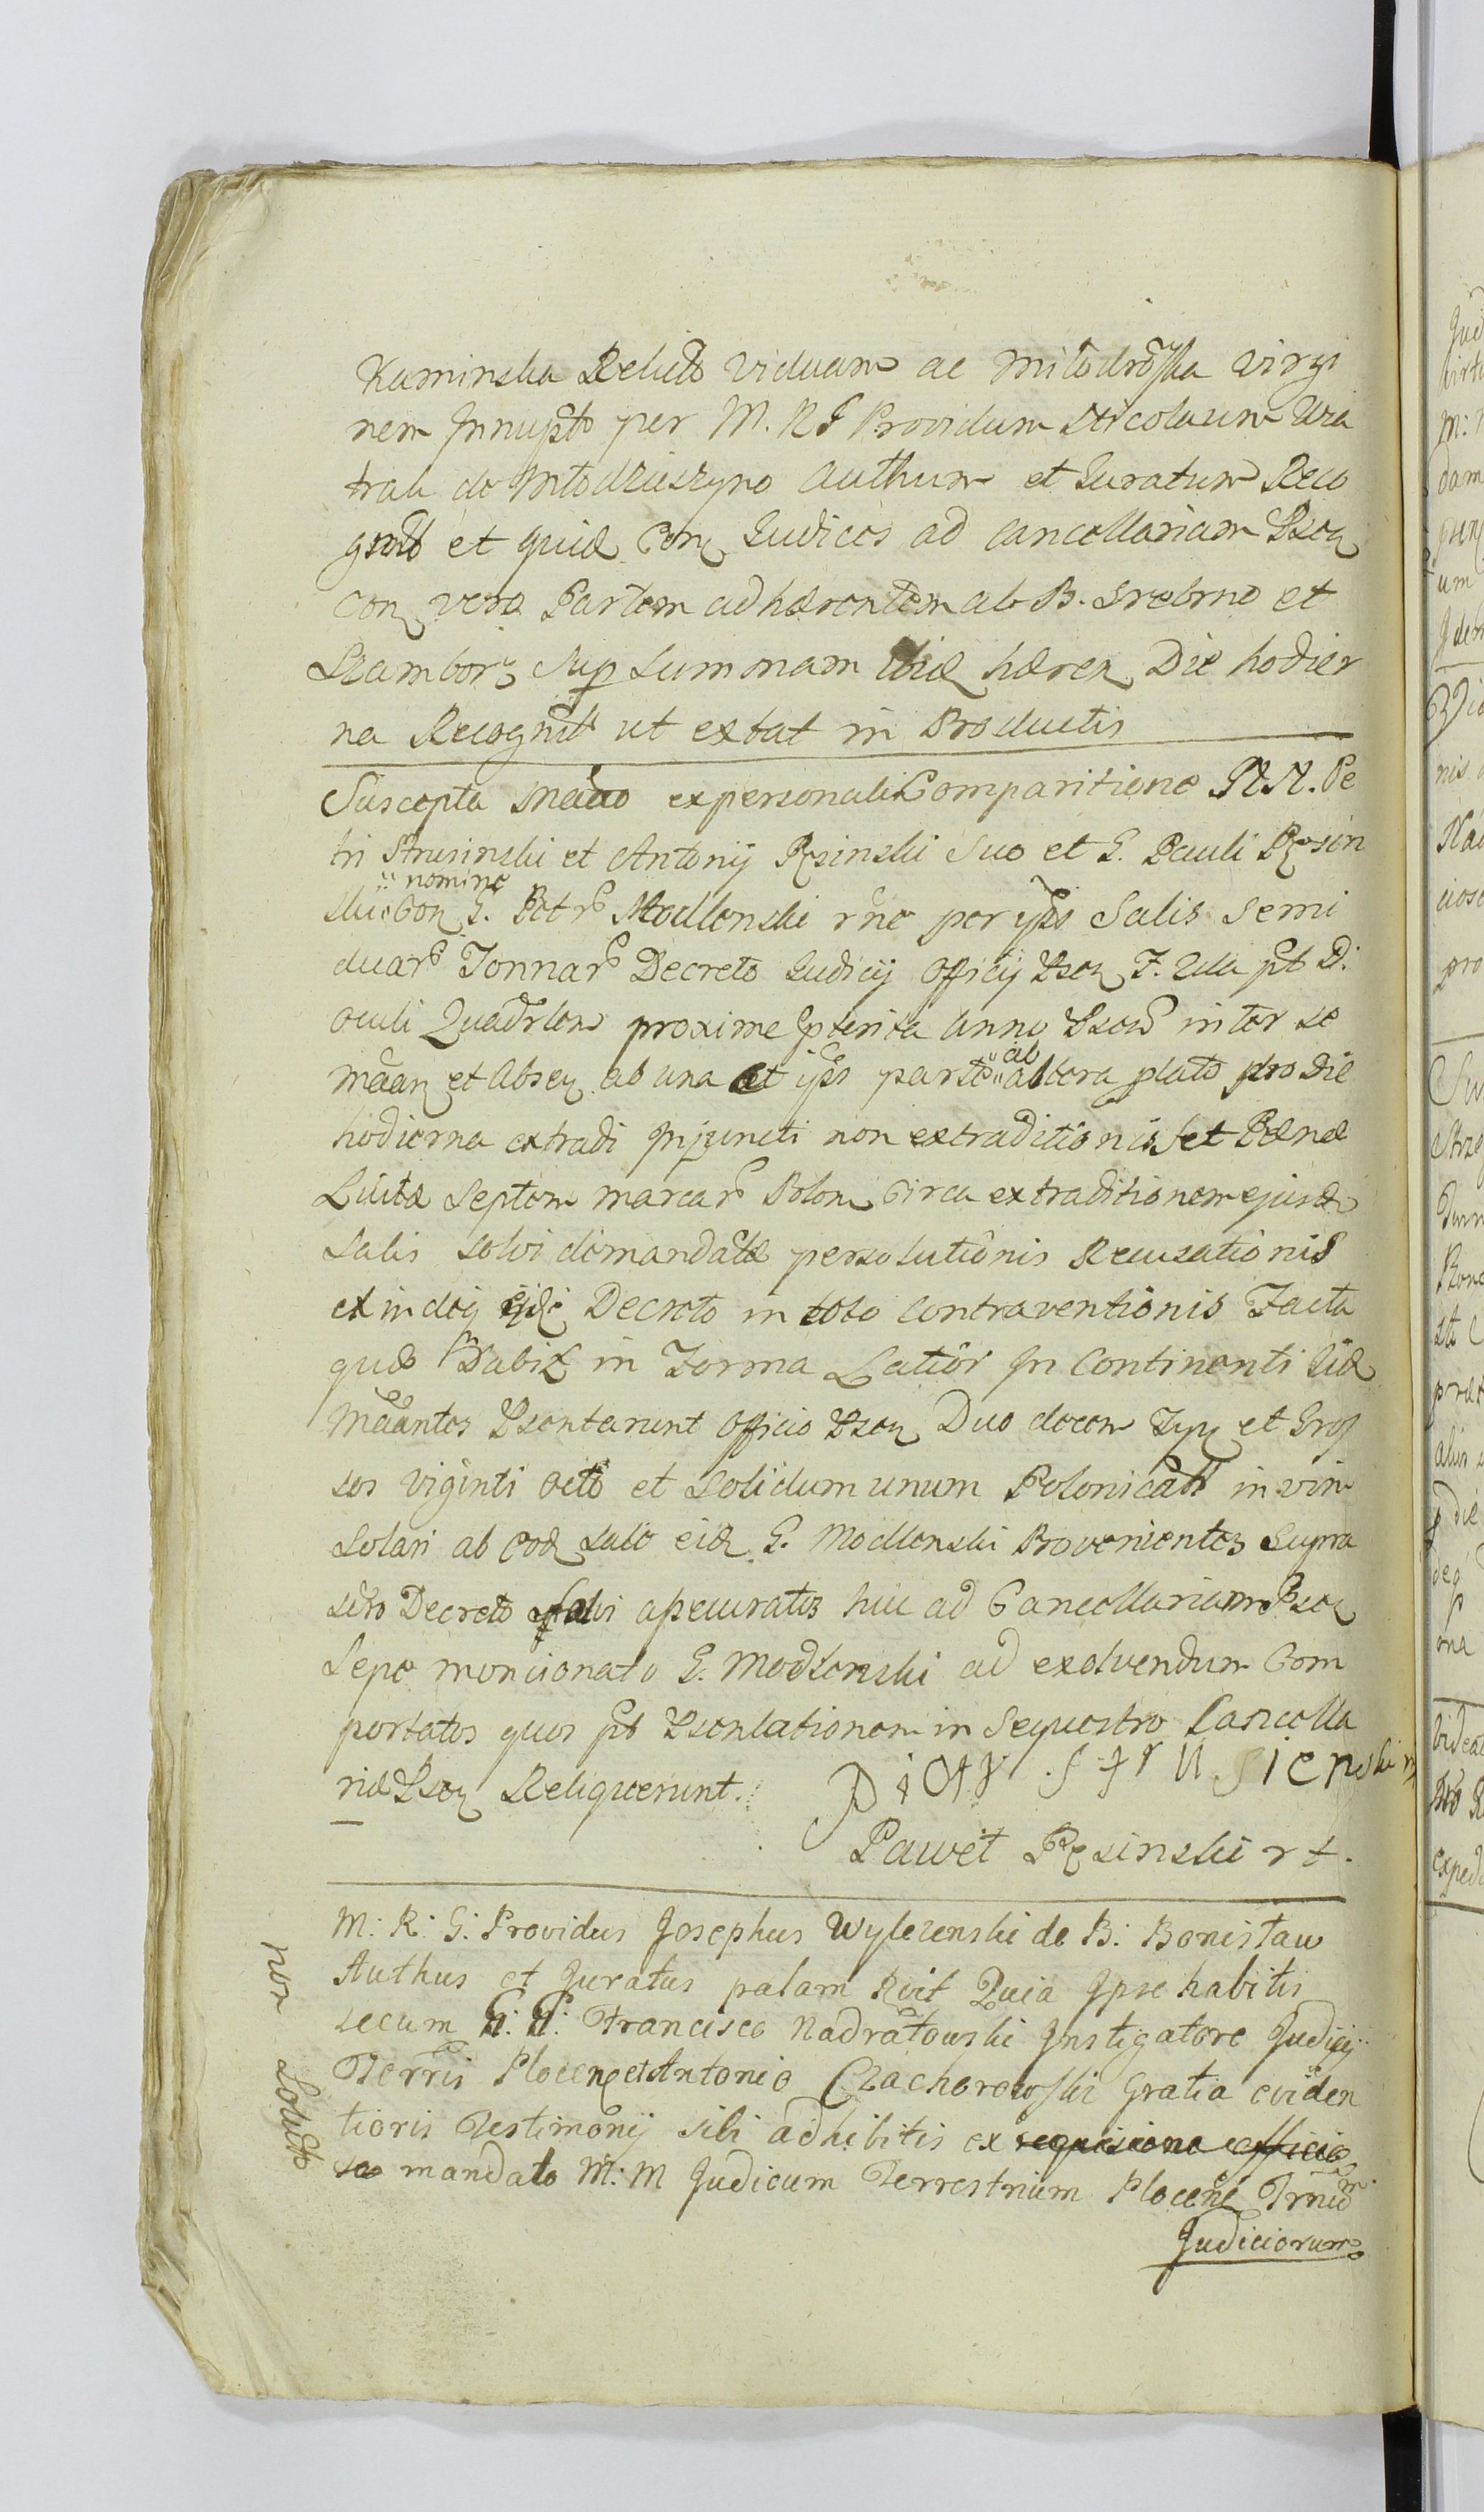 Kaminska Relicto Viduam ac Młodroska virgi
nem Innupto per M. R G Providum Nicolaum Wia
trak de Młodzieszyno Authum et Juratum Reco
gnit et quidē Con Judices ad Cancellariam Pson
Con vero Partem adhærentem ab B. Srebrno et
Szambor Sup Summam ibidē hæren Die hodier
na Recognit ut extat in Productis
Suscepta Maōo ex personali Comparitione NN. Pe
tri Strusinski et Antonij Rzesinski Suo et G. Pauli Rzesin
ski nomine Con G. Petrō Modlenski rñe per ipōs Salis Semi
duarō Tonnarō Decreto Judicij Officij Pson F. 2da pt D.
Oculi Quadrlem proxime pterita Anno Psenō inter se
Māan et Absen ab una et ipōs parte ab altera plato pro Die
hodierna extradi Injuncti non extraditionis et Pænæ
Luitæ Septem marcarō Polon Circa extraditionem ejusdē
Salis solvi demandatæ persolutionis Recusationis
ex inde ijdē Decreto in toto Contraventionis Facta
quō Dabit in Forma Latior In Continenti Iidē
Māantes Psentarunt Officio Pson Duodecem Tyn et Gros
sos viginti octo et Solidum unum Polonicales in vim
Solari ab eodē Sale eidē G. Modlenski Provenientes Supra
scrō Decreto Solvi apecuratos huc ad Cancellariam Pson
Sepe mencionato G. Modlenski ad exolvendum Com
portatos quos pt Psentationem in Sequestro Cancella
riæ Pson Reliquerunt.
Piotr Strusienski
Paweł Rzesinski rt.
M: R: G: Providus Josephus Wylezenski de B: Bonisław
Authus et Juratus palam Rcit Quia Ipse habitis
secum G: G: Francisco Nadratowski Instigatore Judicij
Terris Plocen et Antonio Czachorowski Gratia eviden
tioris Testimonij sibi adhibitis ex requisicione officio
sa mandato M: M Judicum Terrestrium Plocen Trnium
Judiciorum
non Soluto